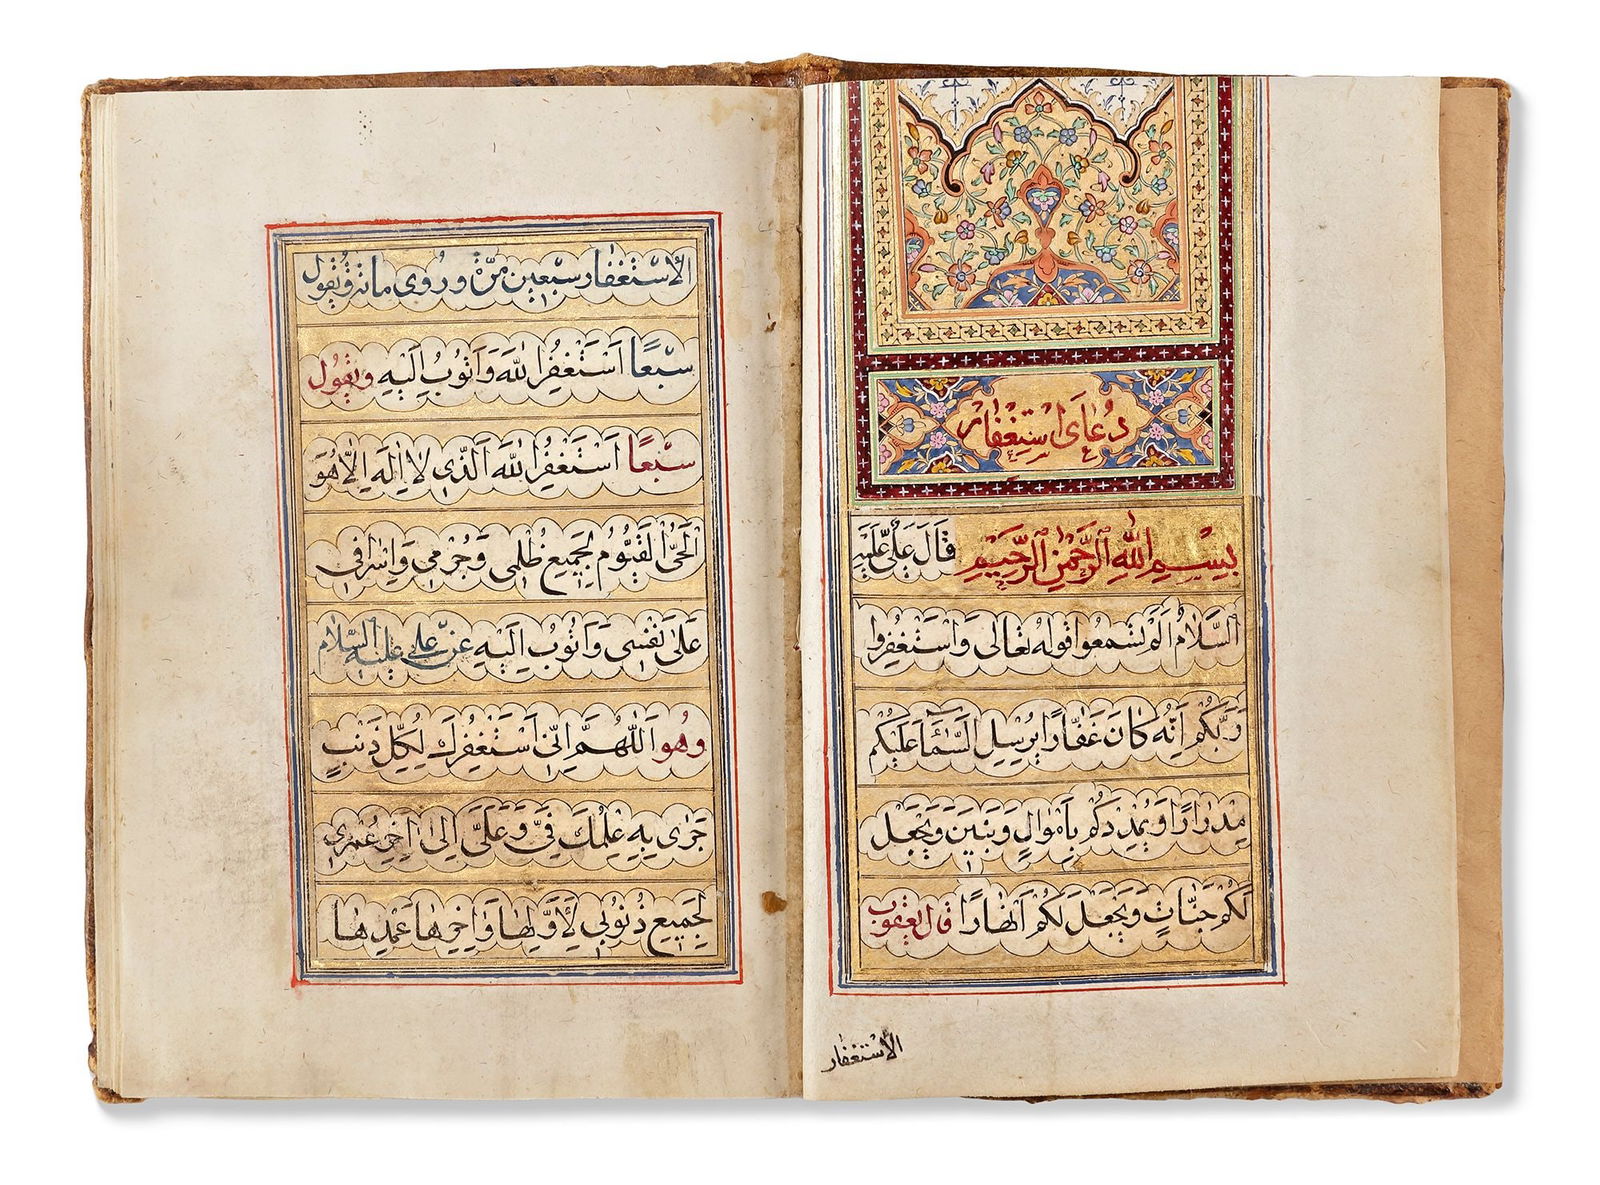 دُعٰاىَ اسْتِغْفٰارْ
بِسْمِ اللهِ الرَّحْمٰنِ الرَّحِيمِ قٰالَ عَلِىٌّ عَلَيْهِ
السَّلٰامُ اَلَمْ تَسْمَعُوا قَوْلَهُ تَعٰالٰى وَاسْتَغْفِرُوا
رَبَّكُمْ اِنَّهُ كٰانَ غَفّٰارًا يُرْسِلِ السَّمٰآءَ عَلَيْكُمْ
مِدْرٰارًا وَيُمْدِدْكُمْ بِاَمْوٰالٍ وَبَنِينَ وَيَجْعَلْ
لَكُمْ جَنّٰاتٍ وَيَجْعَلْ لَكُمْ اَنْهٰارًا قٰالَ يَعْقُوبَ
الْاسْتَغْفٰار
الْاسْتَغْفٰار سَبْعِينَ مَرَّةً وَرُوِىَ مائة وَيَقُولُ
سَبْعًا اَسْتَغْفِرُ اللهَ وَاَتُوبُ اِلَيْهِ وَيَقُولُ
سَبْعًا اَسْتَغْفِرُ اللهَ الَّذِى لٰا اِلٰهَ اِلّٰا هُوَ
الْحَىُّ الْقَيُّومُ لِجَمِيعِ ظُلْمِى وَجُرْمِى وَاِسْرٰافِى
عَلٰى نَفْسِى وَاَتُوبُ اِلَيْهِ عَنْ عَلِىٍّ عَلَيْهِ السَّلٰام
وَهُوَ اَللّٰهُمَّ اِنِّى اَسْتَغْفِرُكَ لِكُلِّ ذَنْبٍ
جَرٰى بِهِ عِلْمُكَ فِىَّ وَعَلَىَّ اِلٰى اٰخِرِ عُمْرِى
لِجَمِيعِ ذُنُوبِى لِاَوَّلِهٰا وَاٰخِرِهٰا عَمْدِهٰا